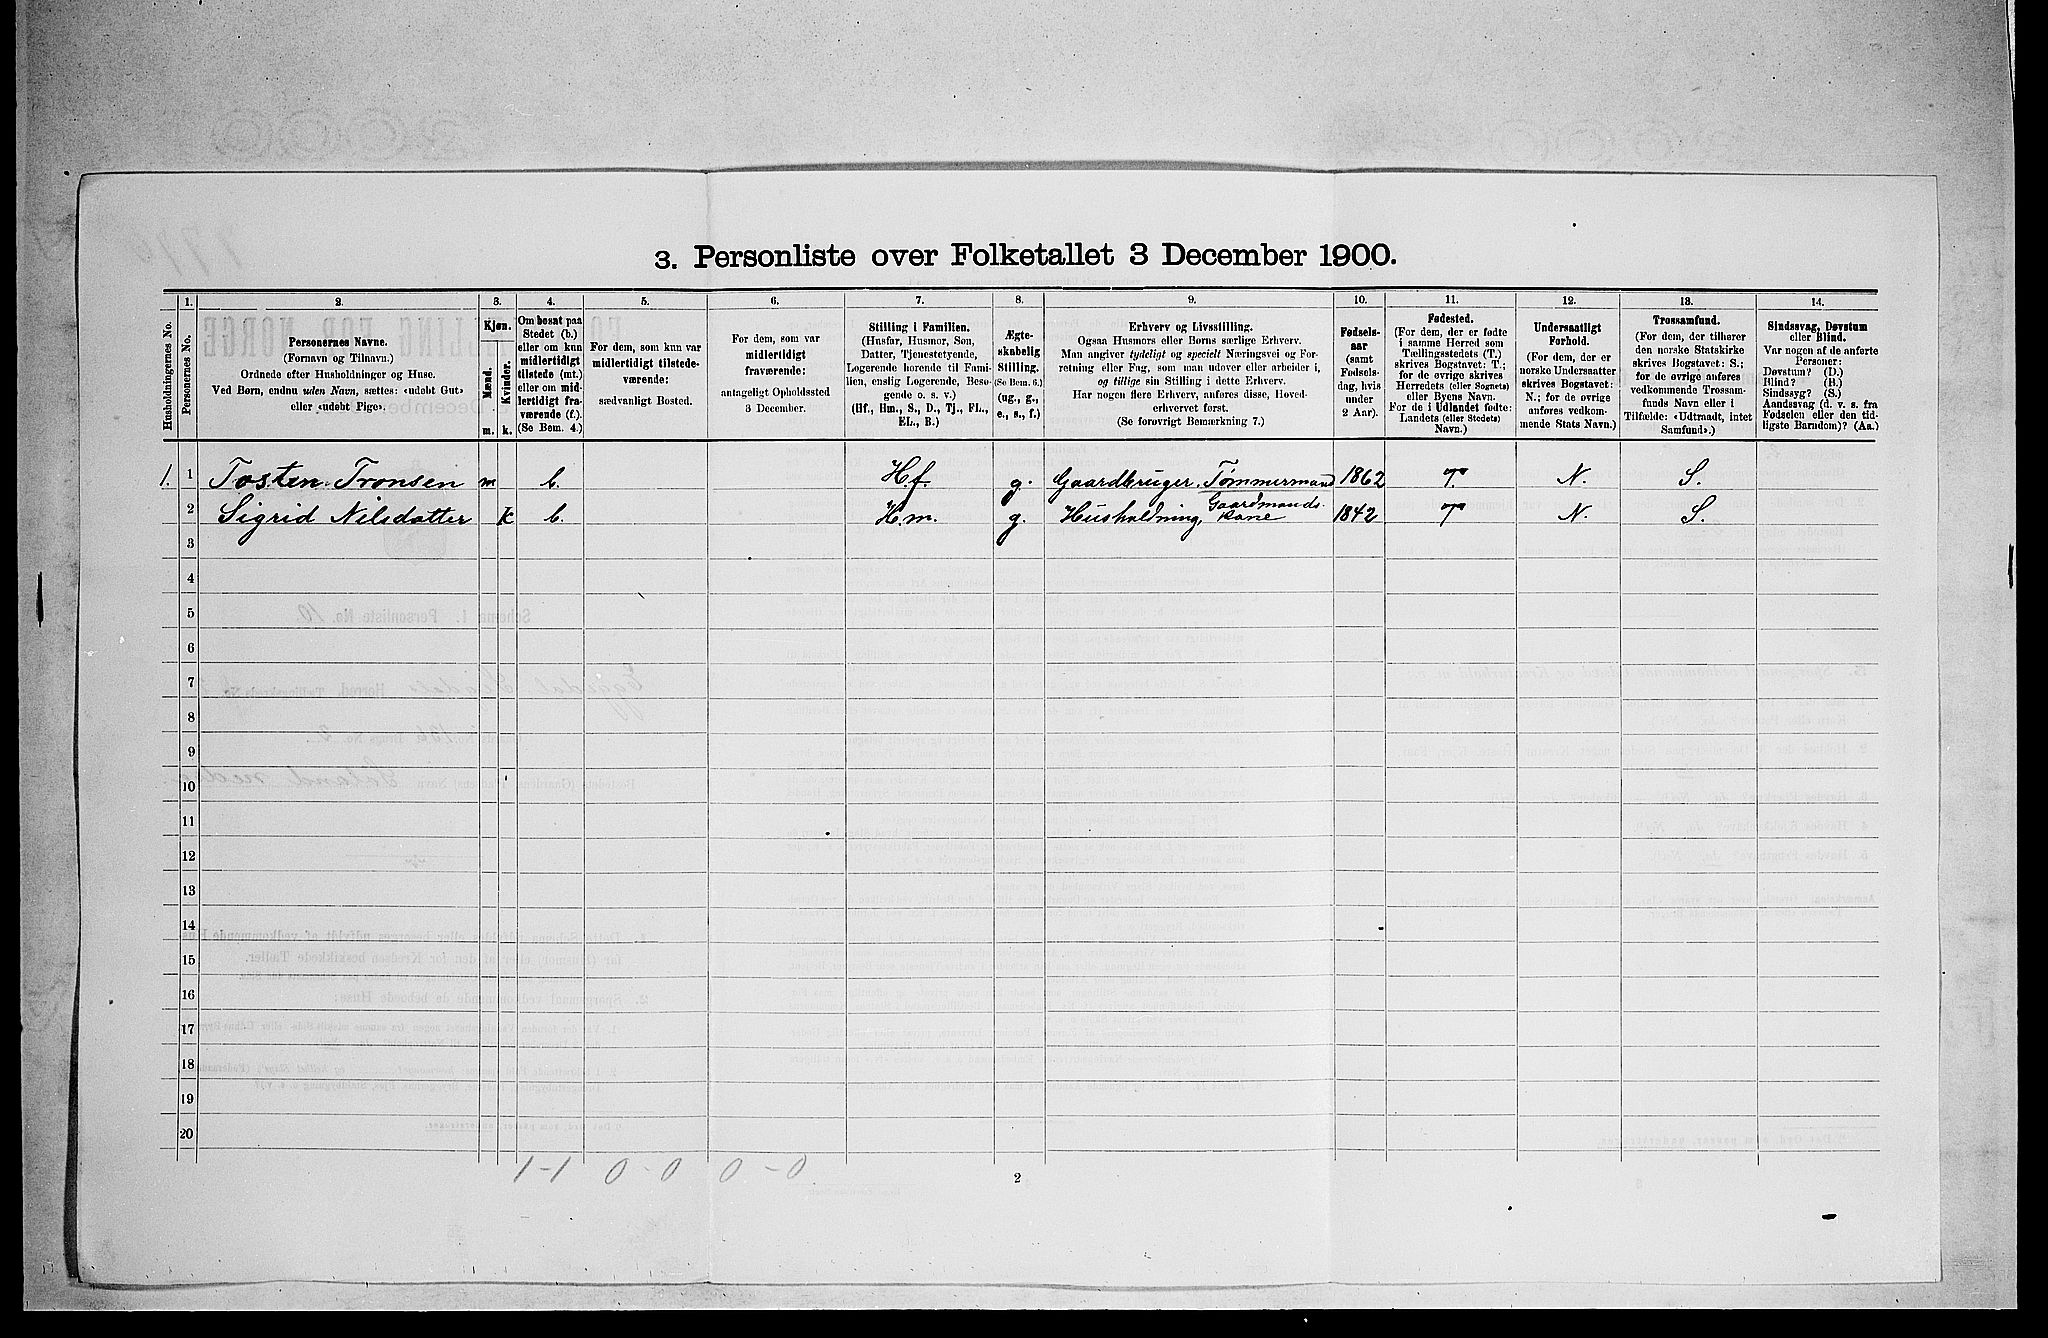 3. Personliste over Folketallet 3 December 1900.
Husholdningernes No.
1.
Personernes No.
2.
Personernes Navne.
(Fornavn og Tilnavn.)
Ordnede efter Husholdninger og Huse.
Ved Børn, endnu uden Navn, sættes: «udøbt Gut»
eller «udøbt Pige».
3.
Kjøn.
Mænd.
Kvinder.
m. k.
4.
Om bosat paa
Stedet (b.)
eller om kun
midlertidigt
tilstede (mt.)
eller om mid-
lertidigt fra-
værende (f.).
(Se Bem. 4.)
5.
For dem, som kun var
midlertidigt tilstede-
værende:
sædvanligt Bosted.
6.
For dem, som var
midlertidigt
fraværende:
antageligt Opholdssted
3 December.
7.
Stilling i Familien.
(Husfar, Husmor, Søn,
Datter, Tjenestetyende,
Logerende hørende til Fami-
lien, enslig Logerende, Besø-
gende o. s. v.)
(Hf., Hm., S., D., Tj., FL.,
EL., B.)
8.
Ægte-
skabelig
Stilling.
(Se Bem. 6.)
(ug., g.,
e., s., f.)
9.
Erhverv og Livsstilling.
Ogsaa Husmors eller Børns særlige Erhverv.
Man angiver tydeligt og specielt Næringsvei og For-
retning eller Fag, som man udøver eller arbeider i,
og tillige sin Stilling i dette Erhverv.
Har nogen flere Erhverv, anføres disse, Hoved-
erhvervet først.
(Se forøvrigt Bemærkning 7.)
10.
Fødsels-
aar
(samt
Fødsels-
dag, hvis
under
2 Aar).
11.
Fødested.
(For dem, der er fødte
i samme Herred som
Tællingsstedets (T.)
skrives Bogstavet: T.;
for de øvrige skrives
Herredets (eller Sognets)
eller Byens Navn.
For de i Udlandet fødte:
Landets (eller Stedets)
Navn.)
12.
Undersaatligt
Forhold.
(For dem, der er
norske Undersaatter
skrives Bogstavet:
N.; for de øvrige
anføres vedkom-
mende Stats Navn.)
13.
Trossamfund.
(For dem, der tilhører
den norske Statskirke
skrives Bogstavet: S.;
for de øvrige anføres
vedkommende Trossam-
funds Navn eller i
Tilfælde: «Udtraadt, intet
Samfund».)
14.
Sindssvag, Døvstum
eller Blind.
Var nogen af de anførte
Personer:
Døvstum? (D.)
Blind? (B.)
Sindssyg? (S.)
Aandssvag (d. v. s. fra
Fødselen eller den tid-
ligste Barndom)? (Aa.)
1. 1 Tosten Tronsen m b. H.f. g. Gaardbruger. Tømmermand 1862 T. N. S.
2 Sigrid Nilsdatter k b. H.m. g. Husholdning, Gaardmands-kone 1842 T N. S.
3
4
5
6
7
8
9
10
11
12
13
14
15
16
17
18
19
20
1-1 0-0 0-0
2